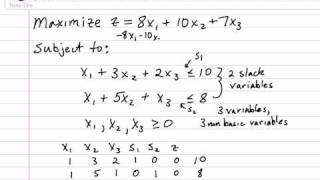 Maximize z = 8x₁ + 10x₂ + 7x₃
-8x₁-10x₂
Subject to:
s₁
x₁ + 3x₂ + 2x₃ ≤ 10 } 2 slack
variables
x₁ + 5x₂ + x₃ ≤ 8
s₂ 3 variables,
x₁, x₂, x₃ ≥ 0 3 non basic variables
x₁ x₂ x₃ s₁ s₂ z
1 3 2 1 0 0 10
1 5 1 0 1 0 8